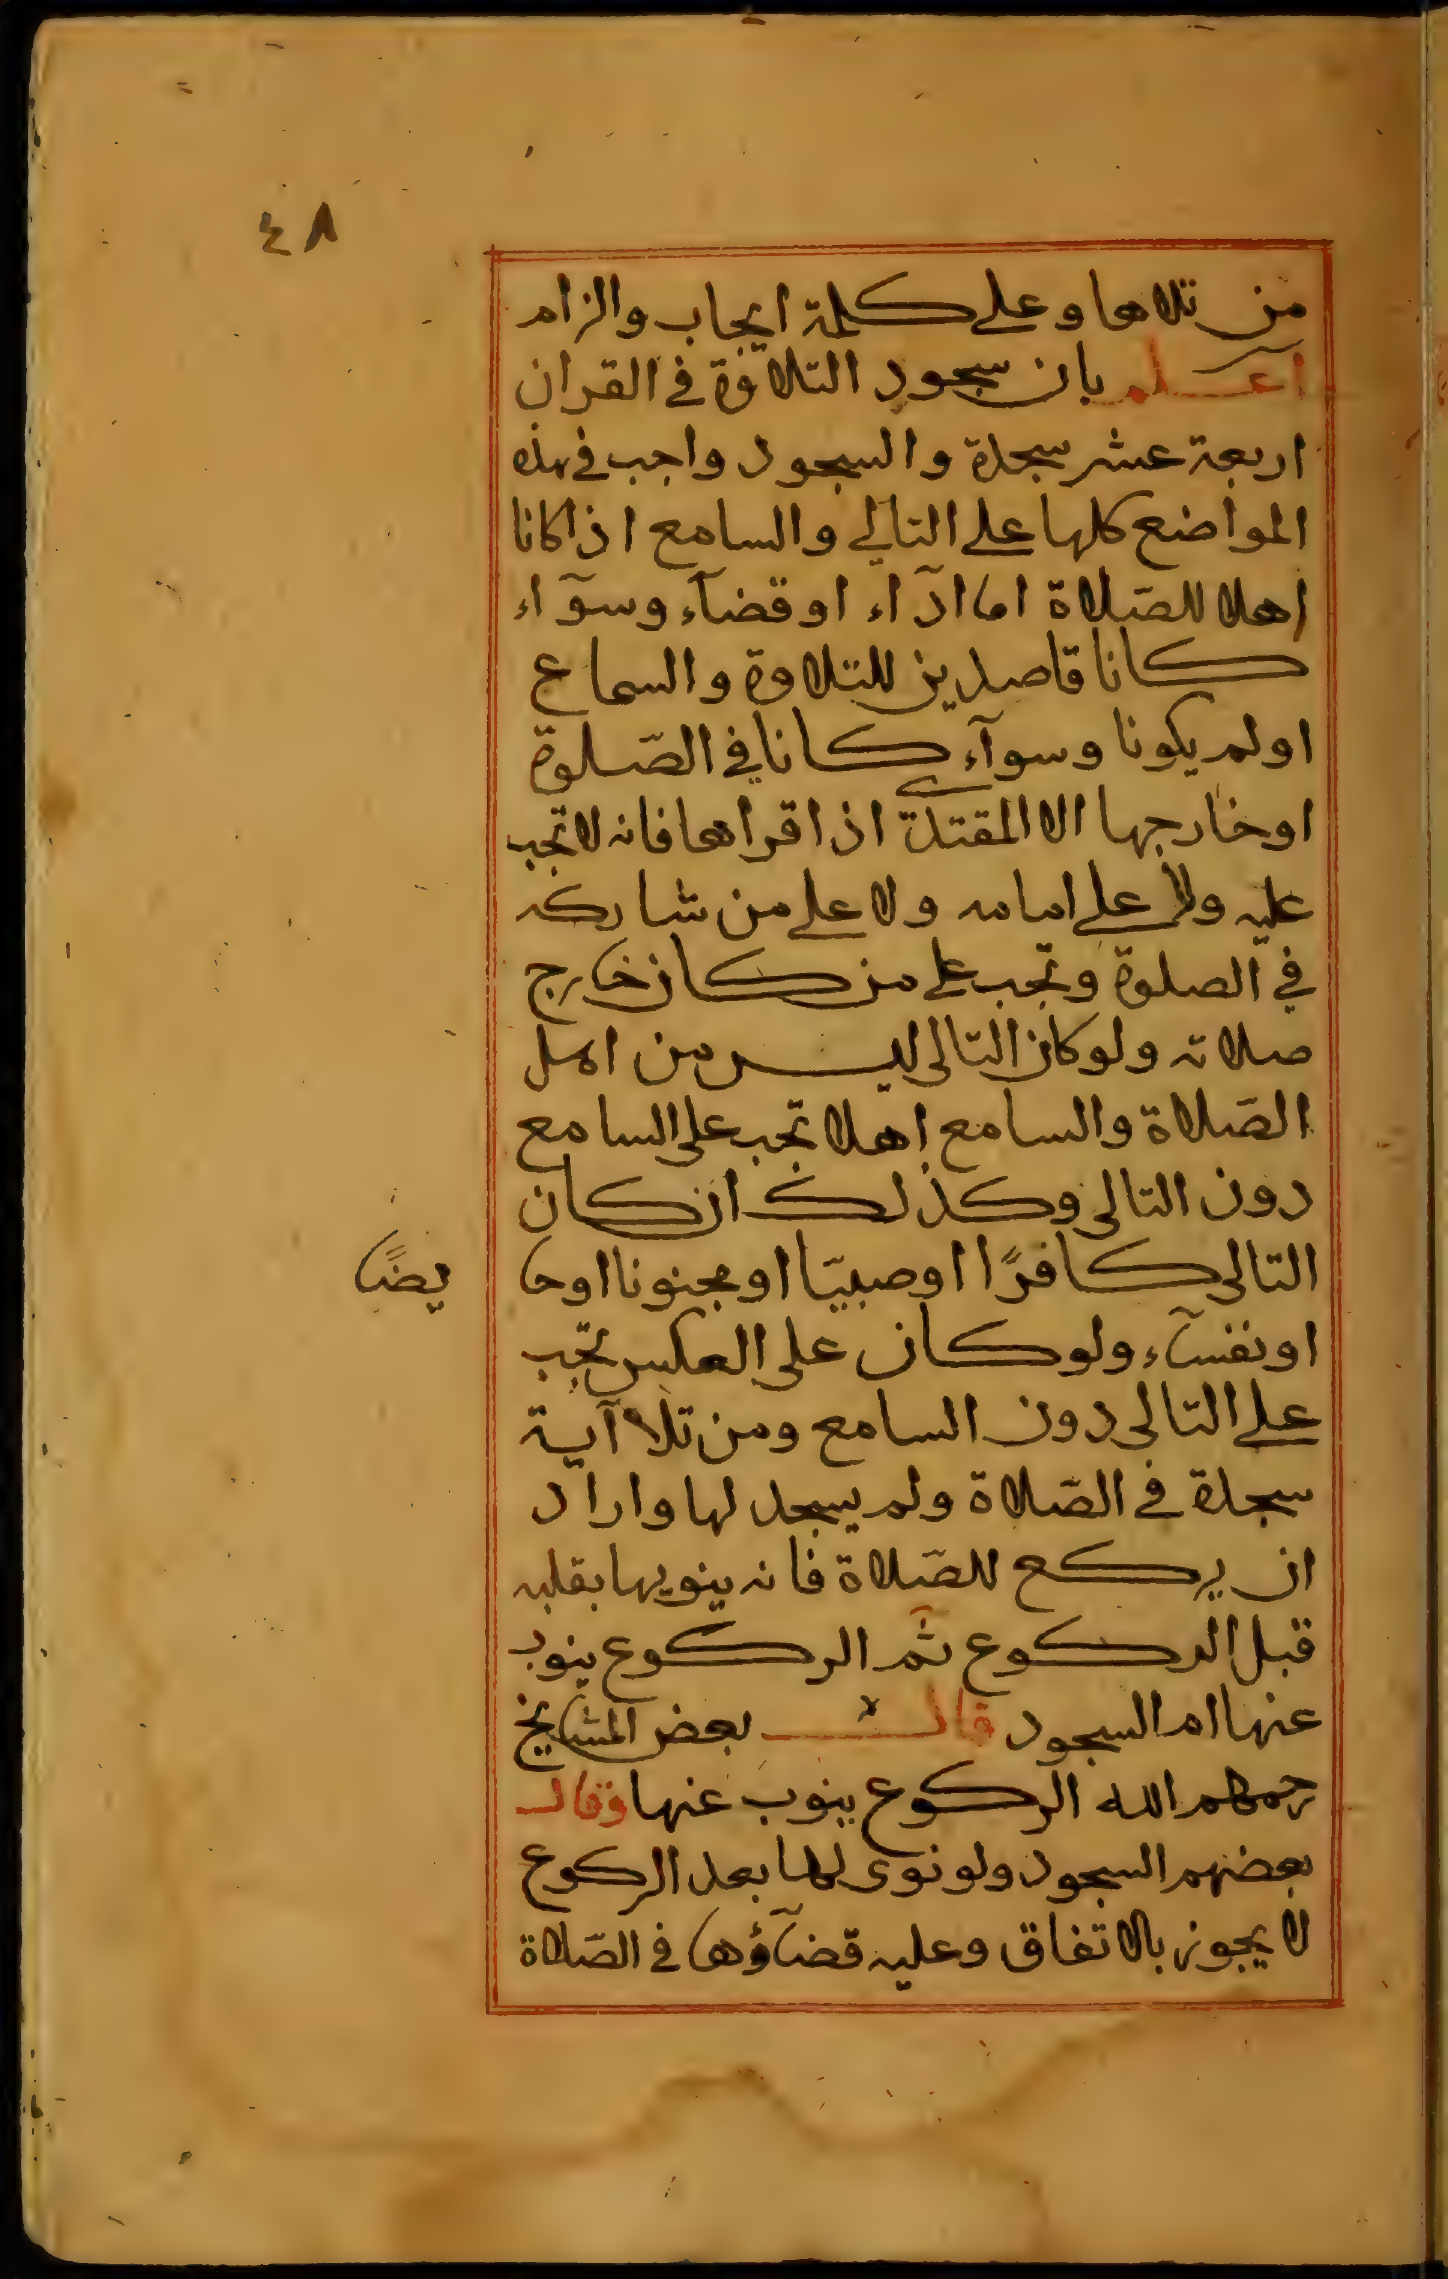 ٤٨
من تلاها وعلى كلمة ايجاب والزام
اعلم بان سجود التلاوة في القران
اربعة عشر سجدة والسجود واجب في هذه
المواضع كلها على التالي والسامع اذا كانا
اهلا للصّلاة اما ادآء او قضآء وسوآء
كانا قاصدين للتلاوة والسماع
اولم يكونا وسوآء كانا في الصّلوة
او خارجها الا المقتدي اذا قراها فانه لا تجب
عليه ولا على امامه ولا على من شاركه
في الصلوة وتجب على من كان خارج
صلاته ولو كان التالى ليس من اهل
الصّلاة والسامع اهلا تجب على السامع
دون التالى وكذلك ان كان
التالى كافرًا او صبيّا او مجنونا او حا يضًا
او نفسآء ولو كان على العكس تجب
على التالى دون السامع ومن تلا آية
سجدة في الصّلاة ولم يسجد لها واراد
ان يركع للصّلاة فانه ينويها بقلبه
قبل الركوع ثم الركوع ينوب
عنها ام السجود قال بعض المشايخ
رحمهم الله الركوع ينوب عنها وقال
بعضهم السجود ولو نوى لها بعد الركوع
لا يجوز بالاتفاق وعليه قضآؤها في الصّلاة